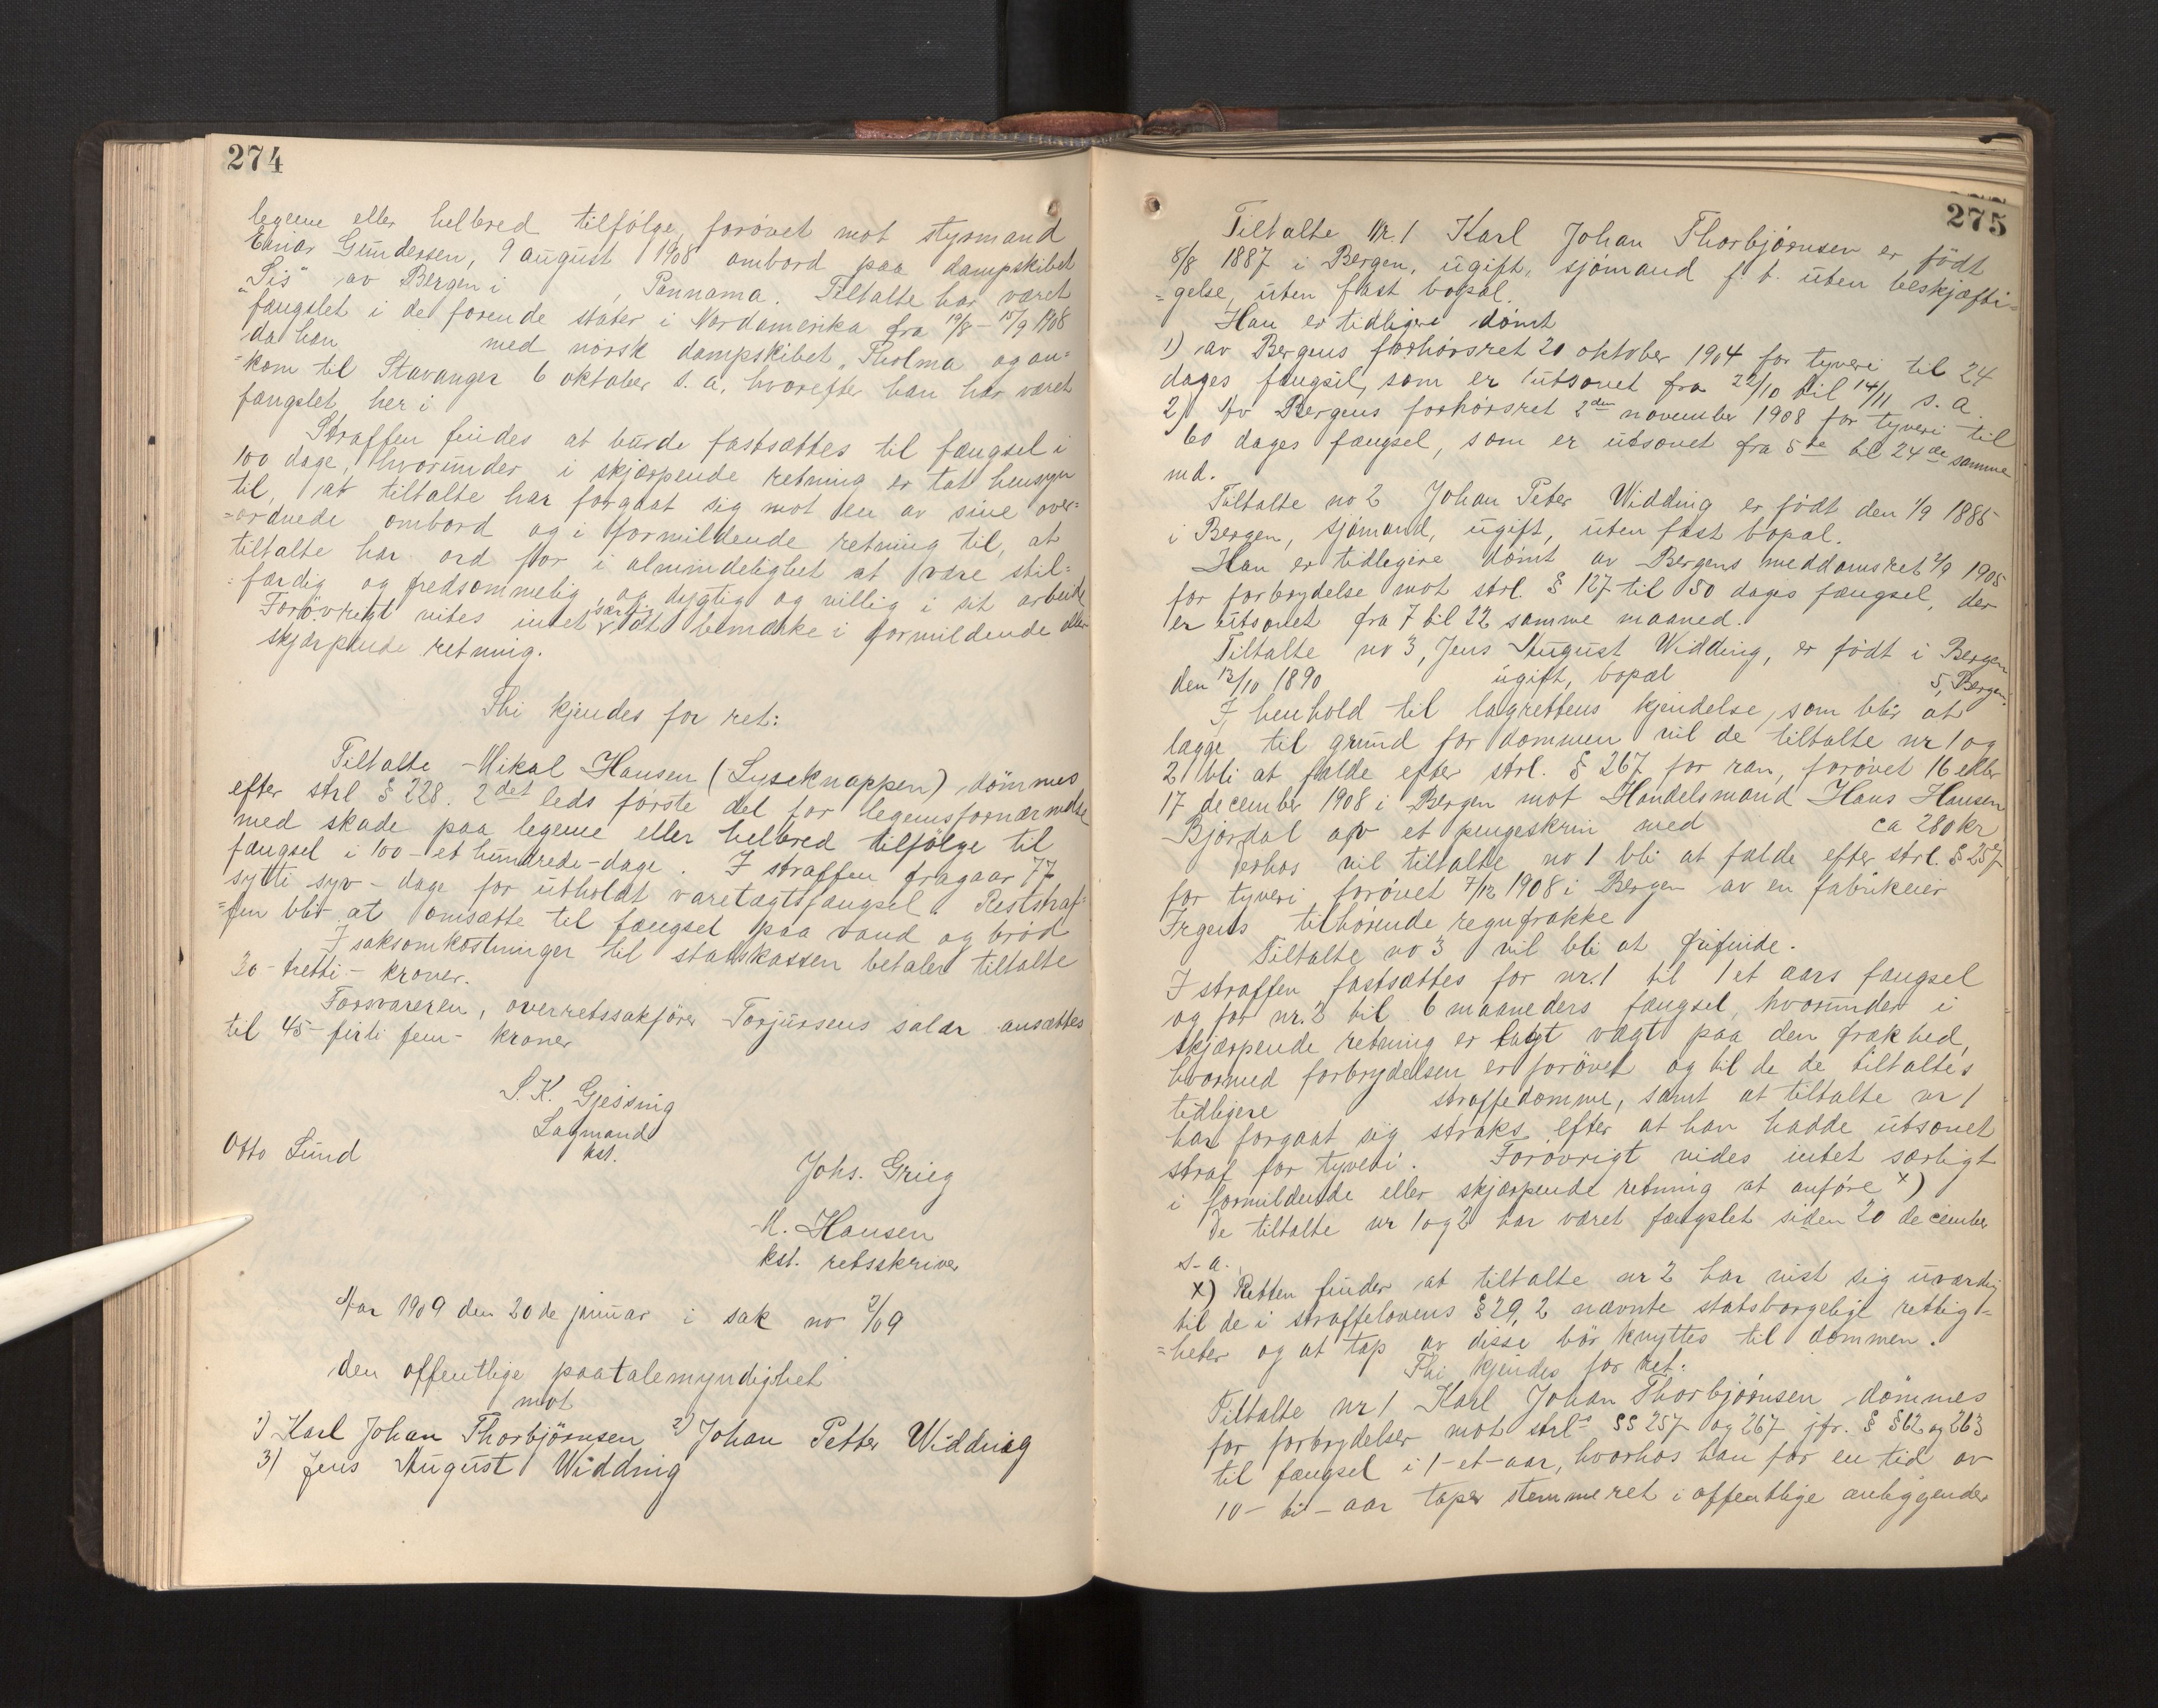 274
legeme eller helbred tilfölge, forövet mot styrmand
Einar Gundersen, 9 august 1908 ombord paa dampskibet
"Sis" av Bergen i , Pannama. Tiltalte har været
fængslet i de forende stater i Nordamerika fra 19/8 - 15/9 1908
da han med norsk dampskibet "Tholma" og an=
=kom til Stavanger 6 oktober s. a. hvorefter han har været
fængslet her i
Straffen findes at burde fastsættes til fængsel i
100 dage, hvorunder i skjærpende retning er tat hensyn
til, at tiltalte har forgaat sig mot en av sine over=
=ordnede ombord og i formildende retning til, at
tiltalte har ord for i almindelighet at være stil=
=færdig og fredsommelig og dygtig og villig i sit arbeide
Forövrigt vites intet særlig at bemærke i formildende eller
skjærpende retning.
Thi kjendes for ret:
Tiltalte Mikal Hansen (Lyseknappen) dömmes
efter strl § 228. 2det leds förste del for legemsfornærmelse
med skade paa legeme eller helbred tilfölge til
fængsel i 100 - et hundrede - dage. I straffen fragaar 77
sytti syv - dage for utholdt varetægtsfængsel. Reststraf=
=fen blir at omsætte til fængsel paa vand og bröd
I saksomkostninger til statskassen betaler tiltalte
30 - tretti - kroner.
Forsvareren, overretssakförer Torjursens salær ansættes
til 45 - firti fem - kroner
S. K. Gjessing
Lagmand
kst.
Otto Lund
Johs. Grieg
M. Hansen
kst. retsskriver
Aar 1909 den 20de januar i sak no 2/09
den offentlige paatalemyndighet
mot
1) Karl Johan Thorbjörnsen 2) Johan Petter Widding
3) Jens August Widding
275
Tiltalte Nr. 1 Karl Johan Thorbjörnsen er födt
8/8 1887 i Bergen, ugift, sjömand f. t. uten beskjæfti=
=gelse, uten fast bopæl.
Han er tidligere dömt
1) av Bergens forhörsret 20 oktober 1904 for tyveri til 24
dages fængsel, som er utsonet fra 22/10 til 14/11 s. a.
2) Av Bergens forhörsret 2den november 1908 for tyveri til
60 dages fængsel, som er utsonet fra 5te til 24de samme
md.
Tiltalte no 2 Johan Peter Widding er födt den 1/9 1885
i Bergen, sjömand, ugift, uten fast bopæl.
Han er tidligere dömt av Bergens meddomsret 2/9 1905
for forbrydelse mot strl. § 127 til 50 dages fængsel, der
er utsonet fra 7 til 22 samme maaned.
Tiltalte no 3, Jens August Widding, er födt i Bergen
den 13/10 1890 ugift, bopæl 5, Bergen.
I henhold til lagrettens kjendelse, som blir at
lægge til grund for dommen vil de tiltalte nr 1 og
2 bli at fælde efter strl. § 267 for ran, forövet 16 eller
17 december 1908 i Bergen mot Handelsmand Hans Hansen
Björdal av et pengeskrin med ca 280 kr
Derhos vil tiltalte no 1 bli at fælde efter strl. § 257
for tyveri forövet 7/12 1908 i Bergen av en fabrikeier
Irgens tilhörende regnfrakke
Tiltalte no 3 vil bli at frifinde.
I straffen fastsættes for nr. 1 til 1 et aars fængsel
og for nr. 2 til 6 maaneders fængsel, hvorunder i
skjærpende retning er lagt vægt paa den frækhed,
hvormed forbrydelsen er forövet og til de de tiltaltes
tidligere straffedomme, samt at tiltalte nr 1
har forgaat sig straks efter at han hadde utsonet
straf for tyveri. Forövrigt vides intet særligt
i formildende eller skjærpende retning at anföre x)
De tiltalte nr 1 og 2 har været fængslet siden 20 december
s. a.
x) Retten finder at tiltalte nr 2 har vist sig uværdig
til de i straffelovens § 29, 2 nævnte statsborgelige rettig=
=heter og at tap av disse bör knyttes til dommen.
Thi kjendes for ret:
Tiltalte nr 1 Karl Johan Thorbjörnsen dömmes
for forbrydelser mot strl. §§ 257 og 267 jfr. § § 62 og 263
til fængsel i 1 - et - aar, hvorhos han for en tid av
10 - ti - aar taper stemmeret i offentlige anliggender